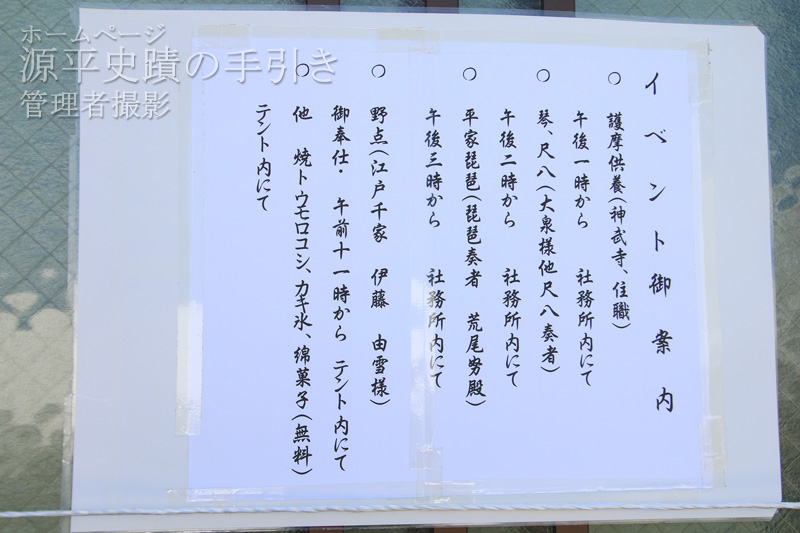 ホームページ
源平史蹟の手引き
管理者撮影
イベント御案内
○ 護摩供養(神武寺、住職)
午後一時から 社務所内にて
○ 琴、尺八(大泉様他尺八奏者)
午後二時から 社務所内にて
○ 平家琵琶(琵琶奏者 荒尾努殿)
午後三時から 社務所内にて
○ 野点(江戸千家 伊藤 由雪様)
御奉仕・ 午前十一時から テント内にて
○ 他 焼トウモロコシ、カキ氷、綿菓子(無料)
テント内にて